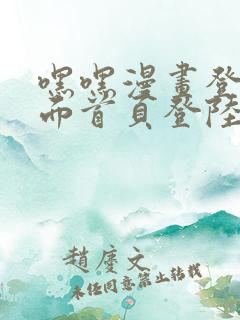 嘿嘿漫畫登
而首頁登陸
趙慶文
未經同意禁止轉載